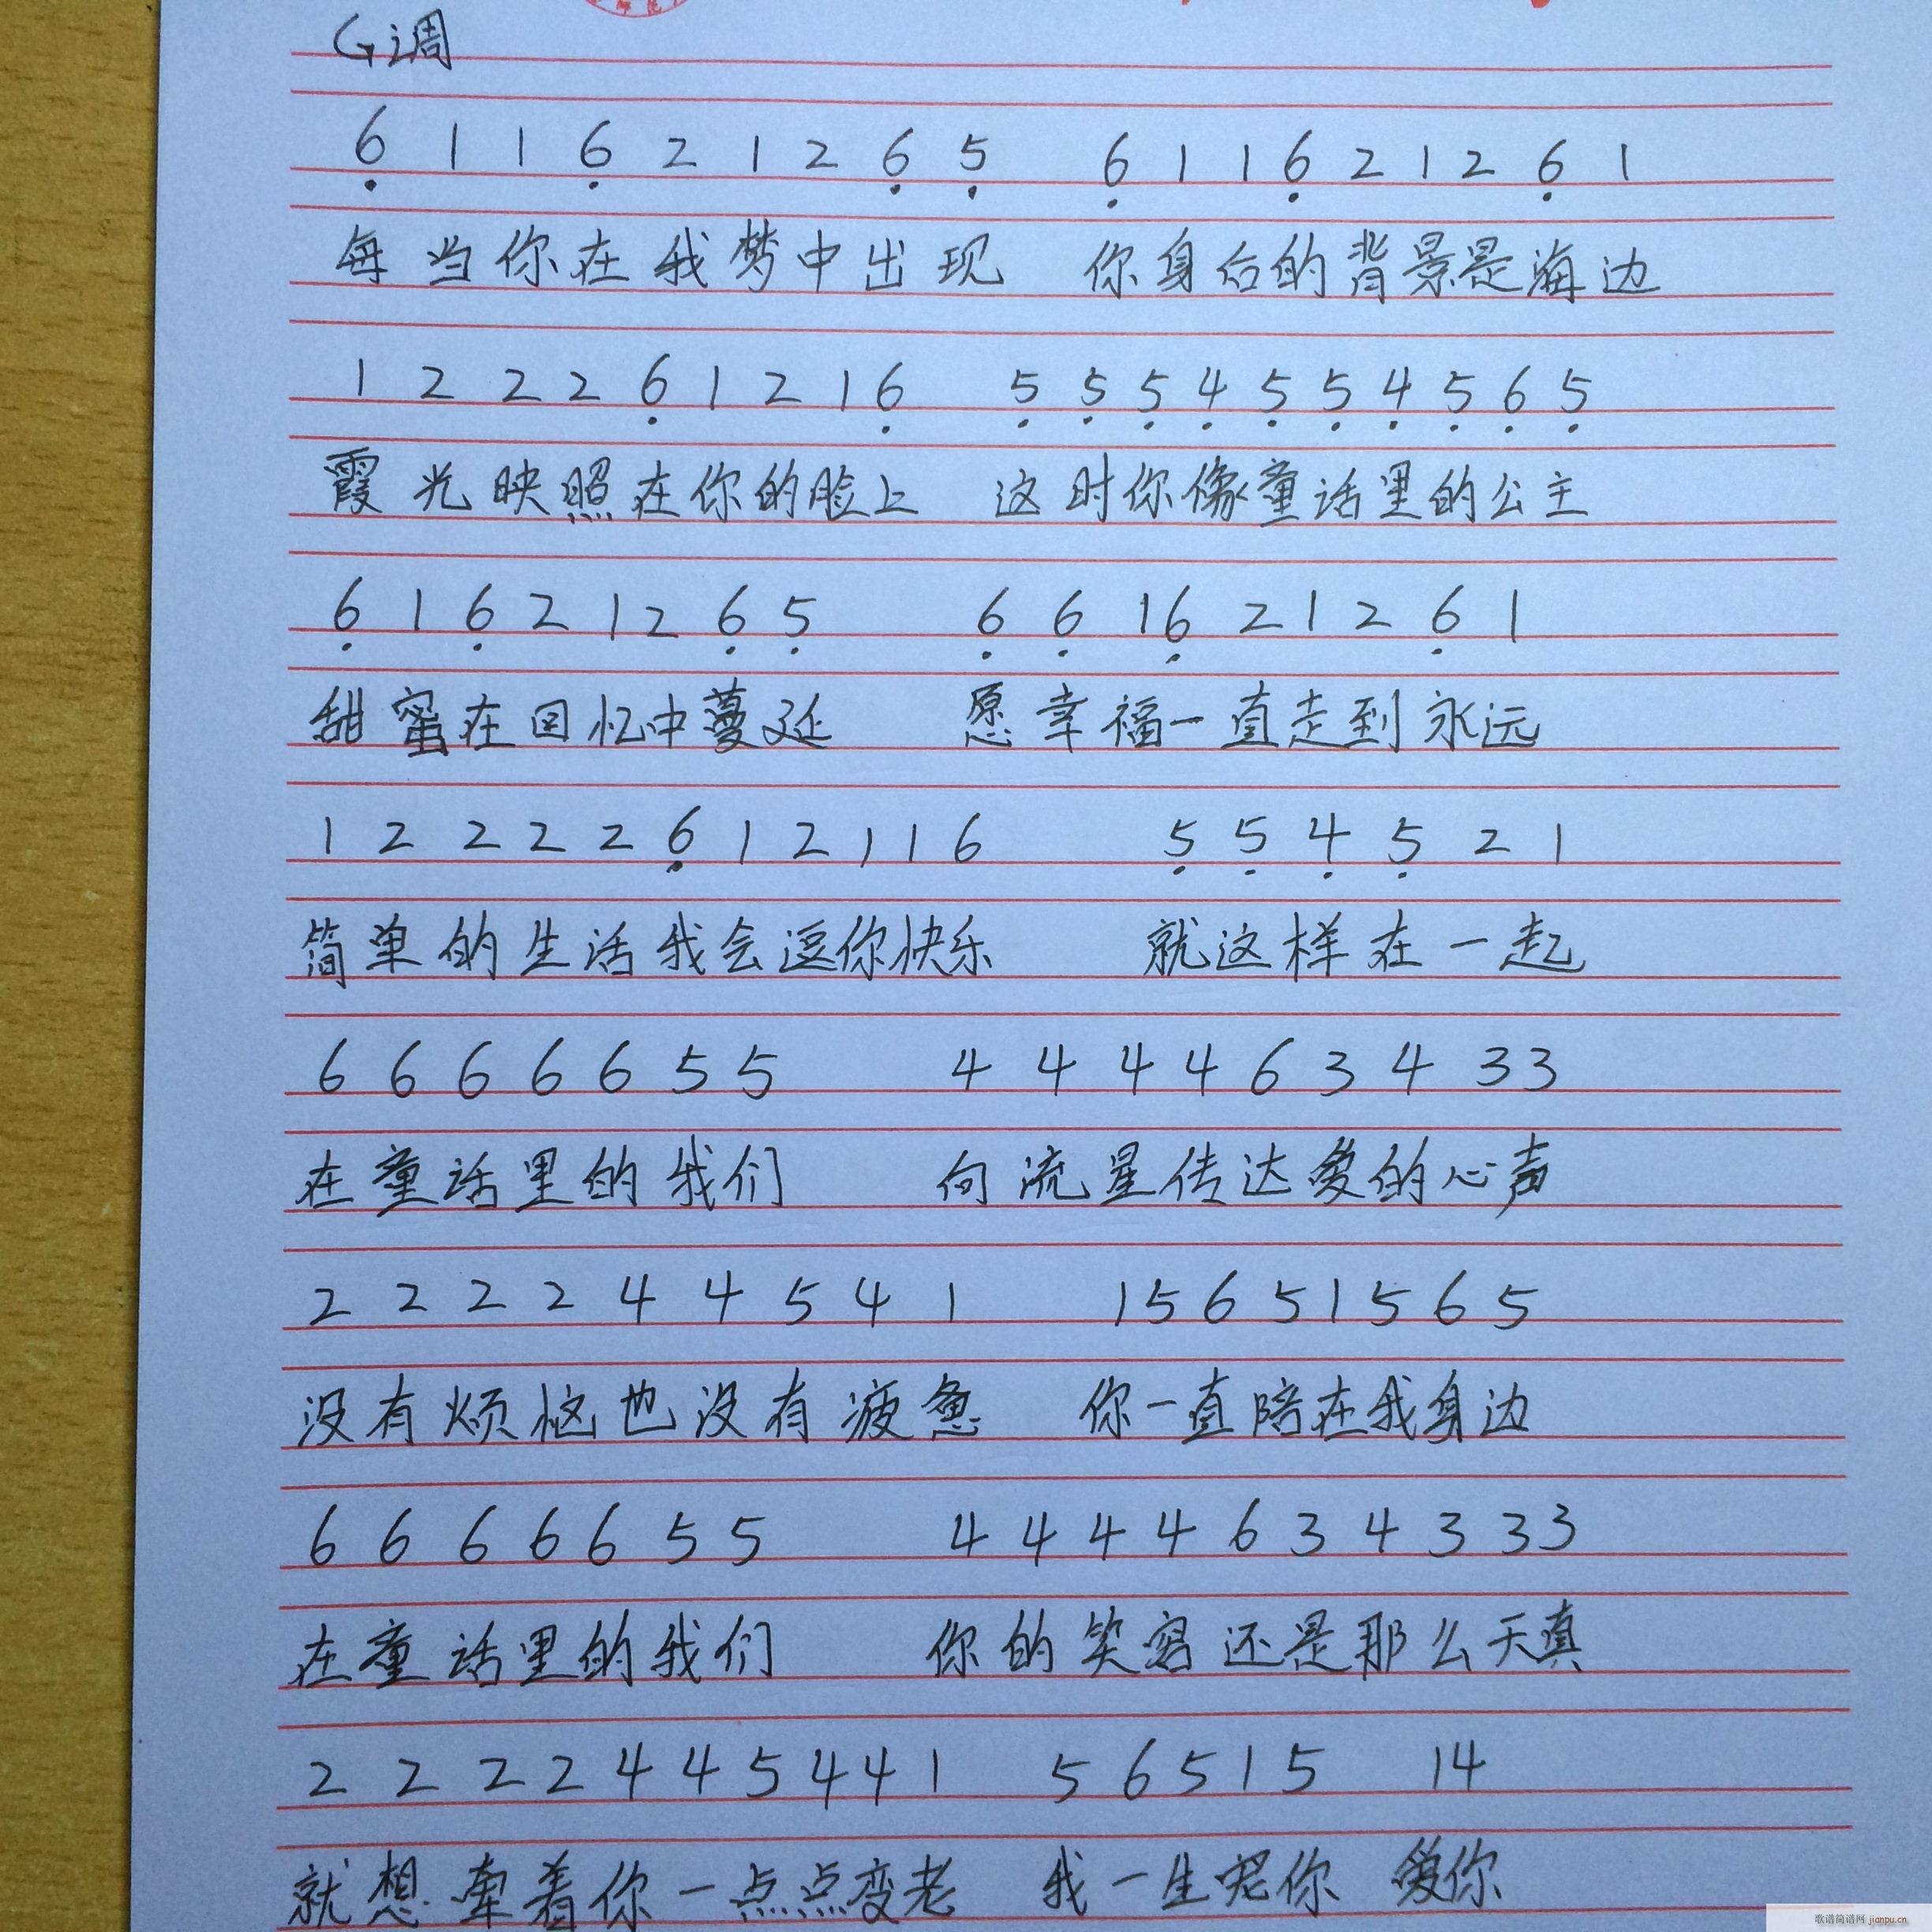 G调
6̣ 1 1 6̣ 2 1 2 6̣ 5̣ 6̣ 1 1 6̣ 2 1 2 6̣ 1
每当你在我梦中出现 你身后的背景是海边
1 2 2 2 6̣ 1 2 1 6̣ 5̣ 5̣ 5̣ 4̣ 5̣ 5̣ 4̣ 5̣ 6̣ 5̣
霞光映照在你的脸上 这时你像童话里的公主
6̣ 1 6̣ 2 1 2 6̣ 5̣ 6̣ 6̣ 1 6̣ 2 1 2 6̣ 1
甜蜜在回忆中蔓延 愿幸福一直走到永远
1 2 2 2 2 6̣ 1 2 1 1 6 5̣ 5̣ 4̣ 5̣ 2 1
简单的生活我会逗你快乐 就这样在一起
6 6 6 6 6 5 5 4 4 4 4 6 3 4 3 3
在童话里的我们 向流星传达爱的心声
2 2 2 2 4 4 5 4 1 1 5 6 5 1 5 5 6 5
没有烦恼也没有疲惫 你一直陪在我身边
6 6 6 6 6 5 5 4 4 4 4 6 3 4 3 3 3
在童话里的我们 你的笑容还是那么天真
2 2 2 2 4 4 5 4 4 1 5 6 5 1 5 1 4
就想牵着你一点点变老 我一生把你 爱你
歌谱简谱网 jianpu.cn